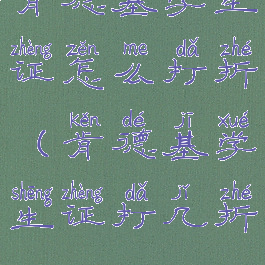 肯德基学生
zhèng zěn me dǎ zhé
证怎么打折
kěn dé jī xué
（肯德基学
shēng zhèng dǎ jǐ zhé
生证打几折